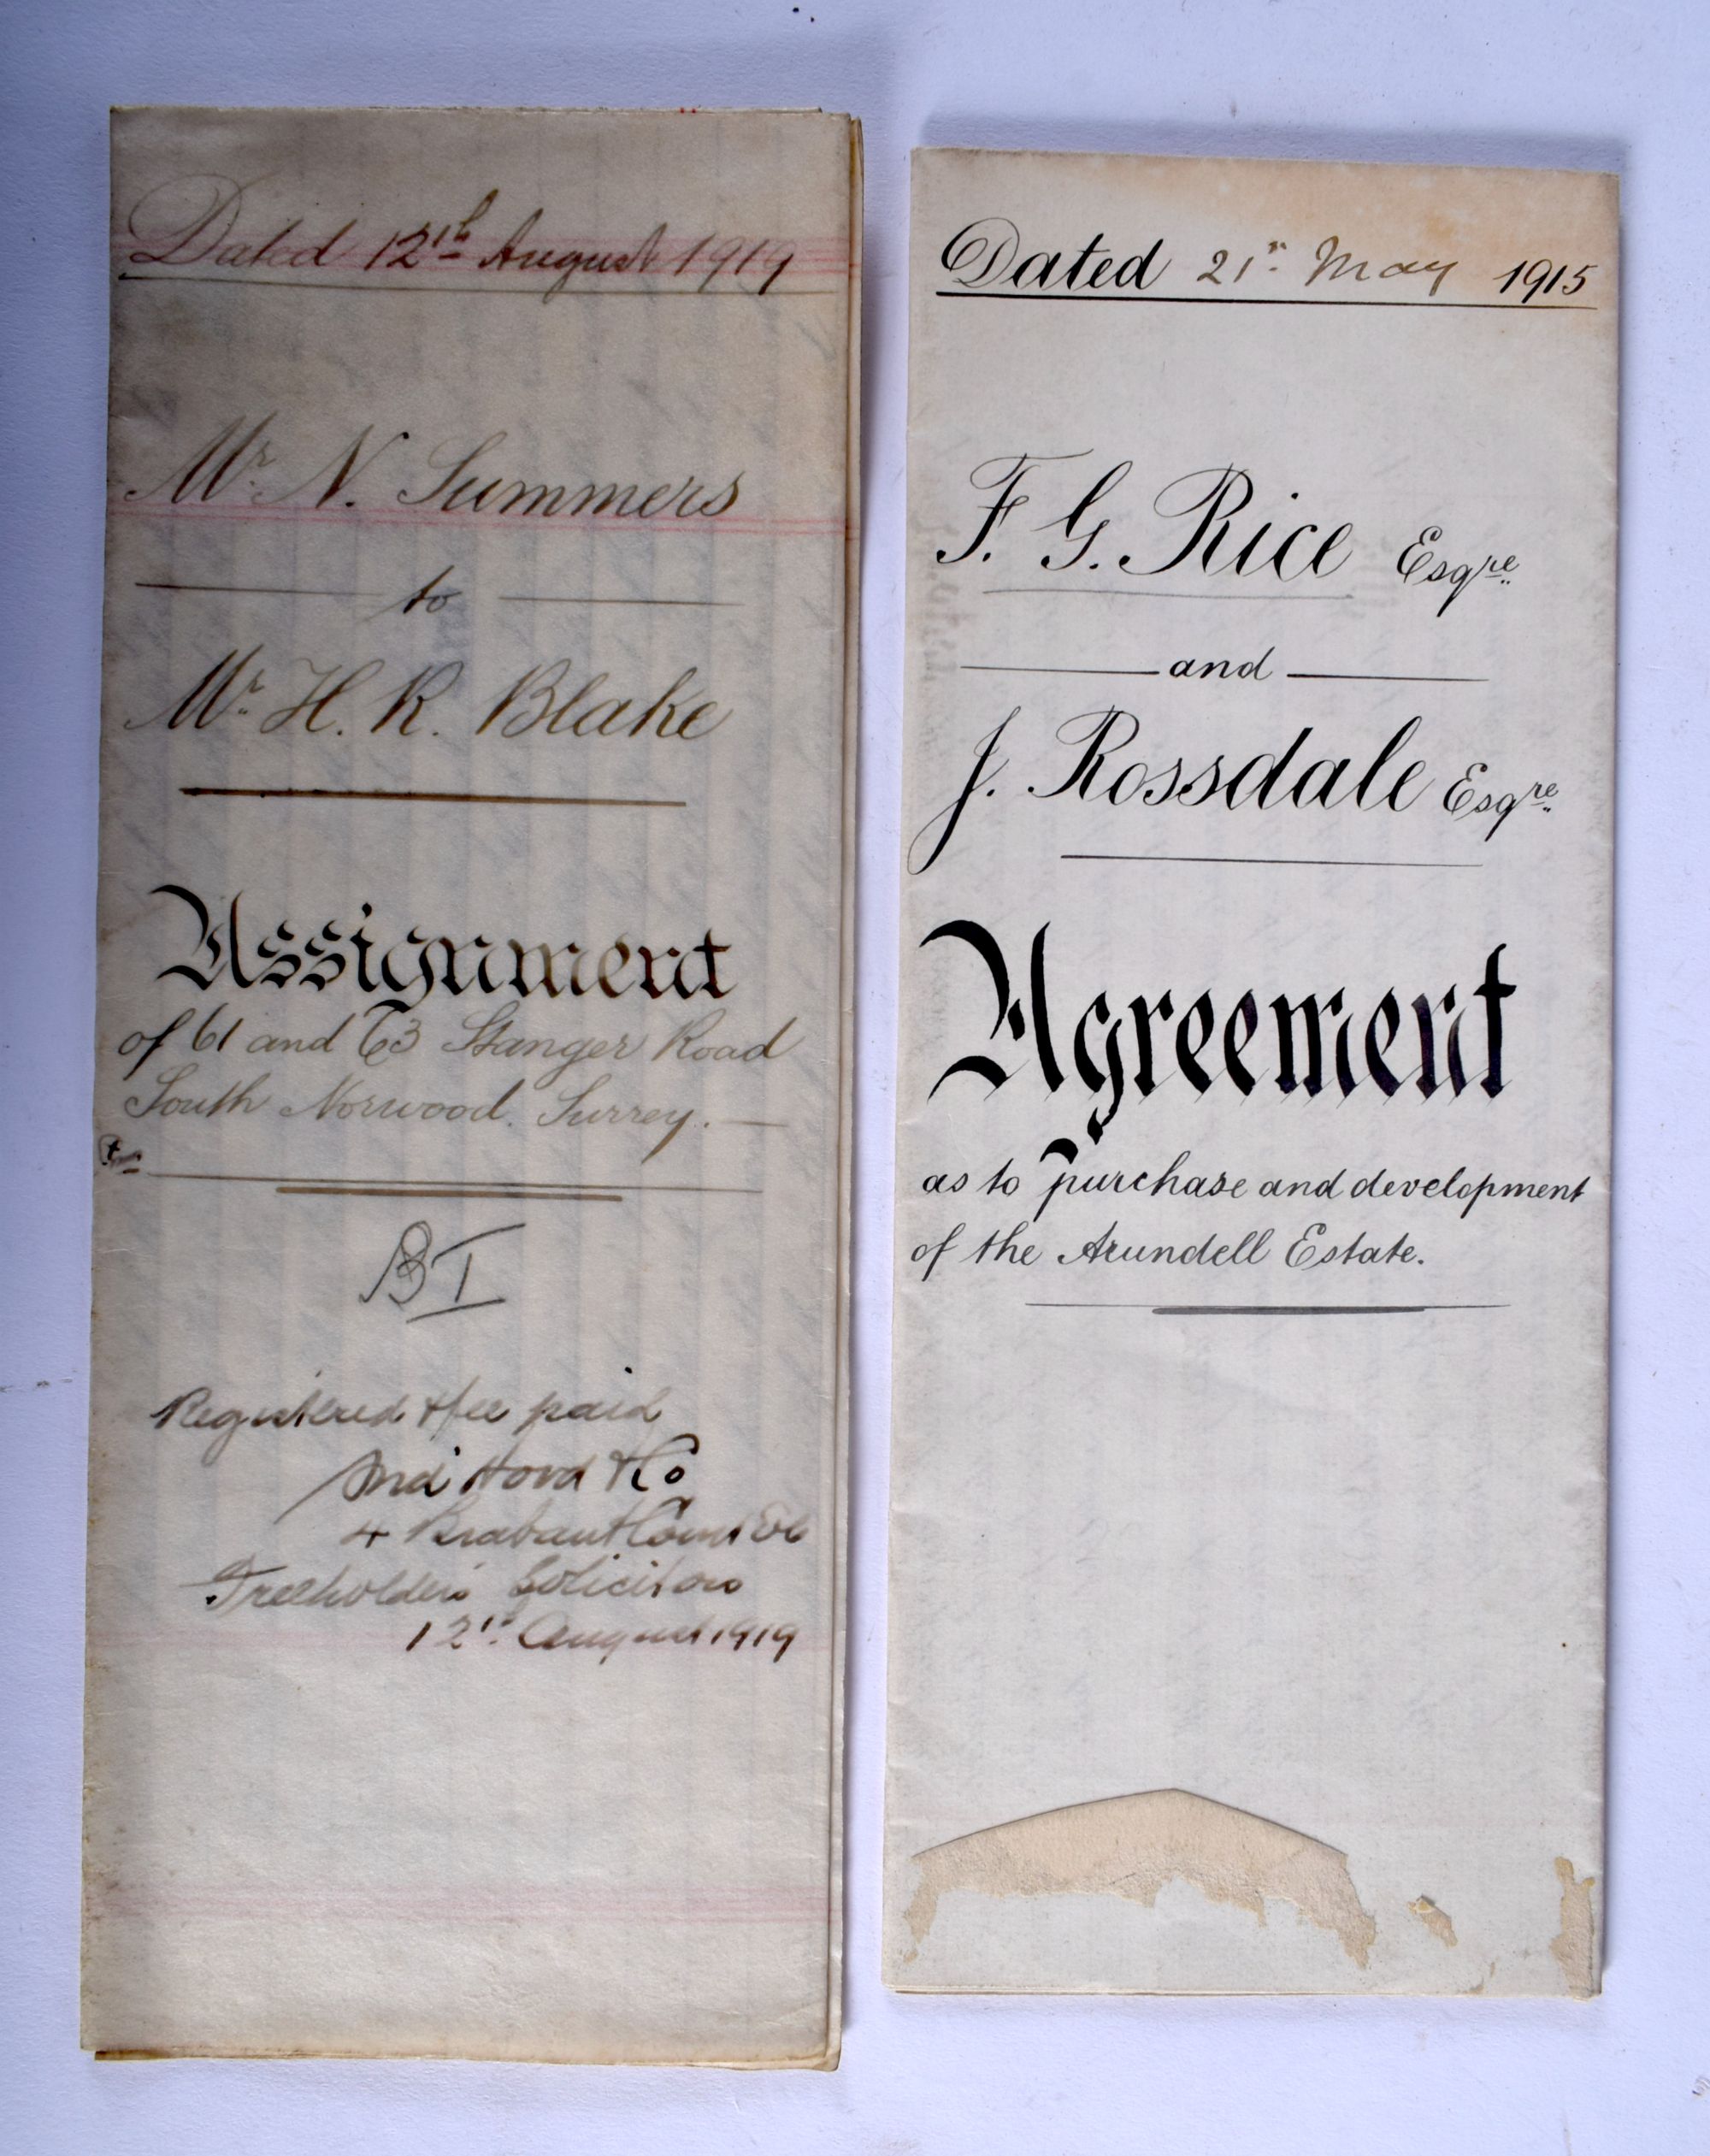 Dated 12th August 1919
Mr. N. Summers
to
Mr. H. R. Blake
Assignment
of 61 and 63 Stanger Road
South Norwood. Surrey.
B I
Registered & fee paid
& Co
4 Brabant Court EC
Freeholders Solicitors
12th August 1919
Dated 21st May 1915
F. G. Rice Esqre
and
J. Rossdale Esqre
Agreement
as to purchase and development
of the Arundell Estate.